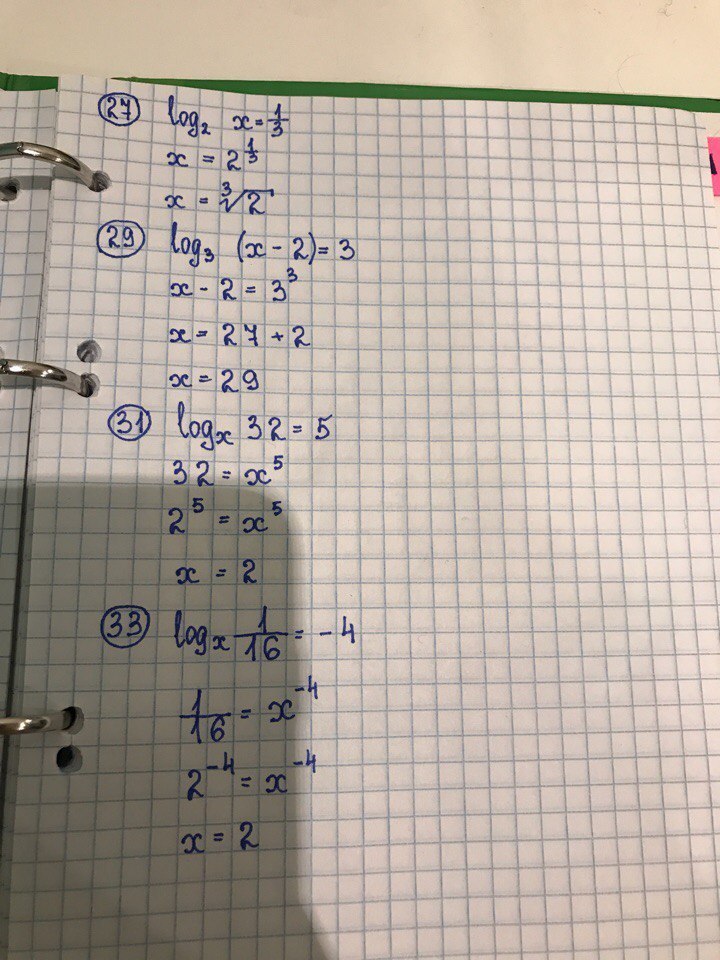 27 log₂ x = 1/3
x = 2^(1/3)
x = ³√2
29 log₃ (x - 2) = 3
x - 2 = 3³
x = 27 + 2
x = 29
31 logₓ 32 = 5
32 = x⁵
2⁵ = x⁵
x = 2
33 logₓ 1/16 = -4
1/16 = x⁻⁴
2⁻⁴ = x⁻⁴
x = 2